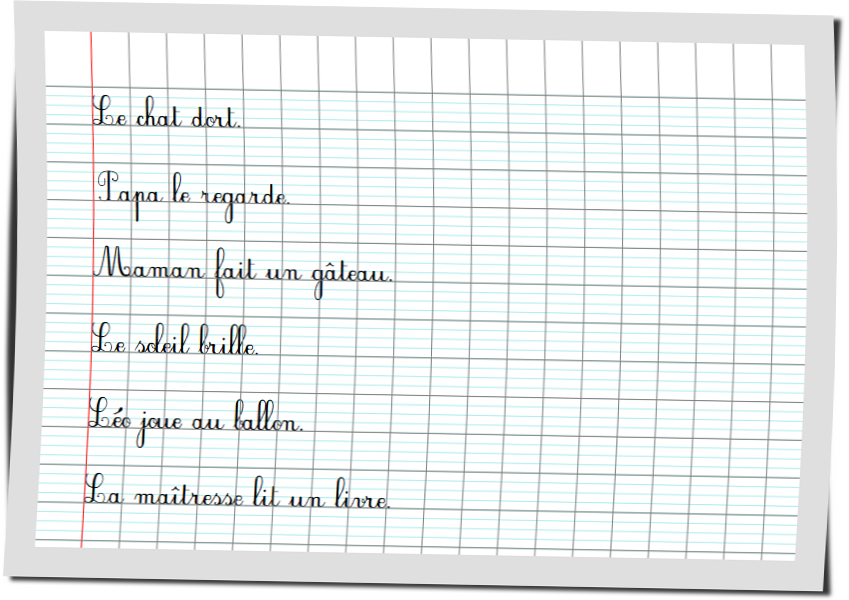 Le chat dort.
Papa le regarde.
Maman fait un gâteau.
Le soleil brille.
Léo joue au ballon.
La maîtresse lit un livre.